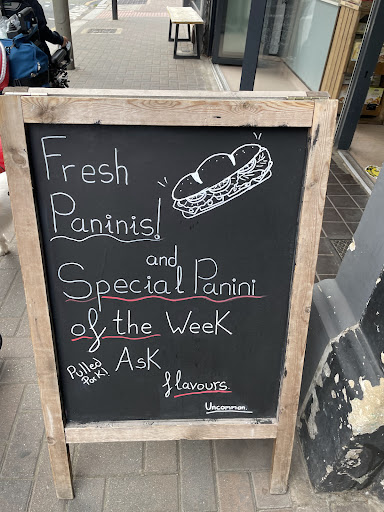 Fresh
Paninis!
and
Special Panini
of the Week
Pulled
Pork!
Ask
flavours.
Uncommon.